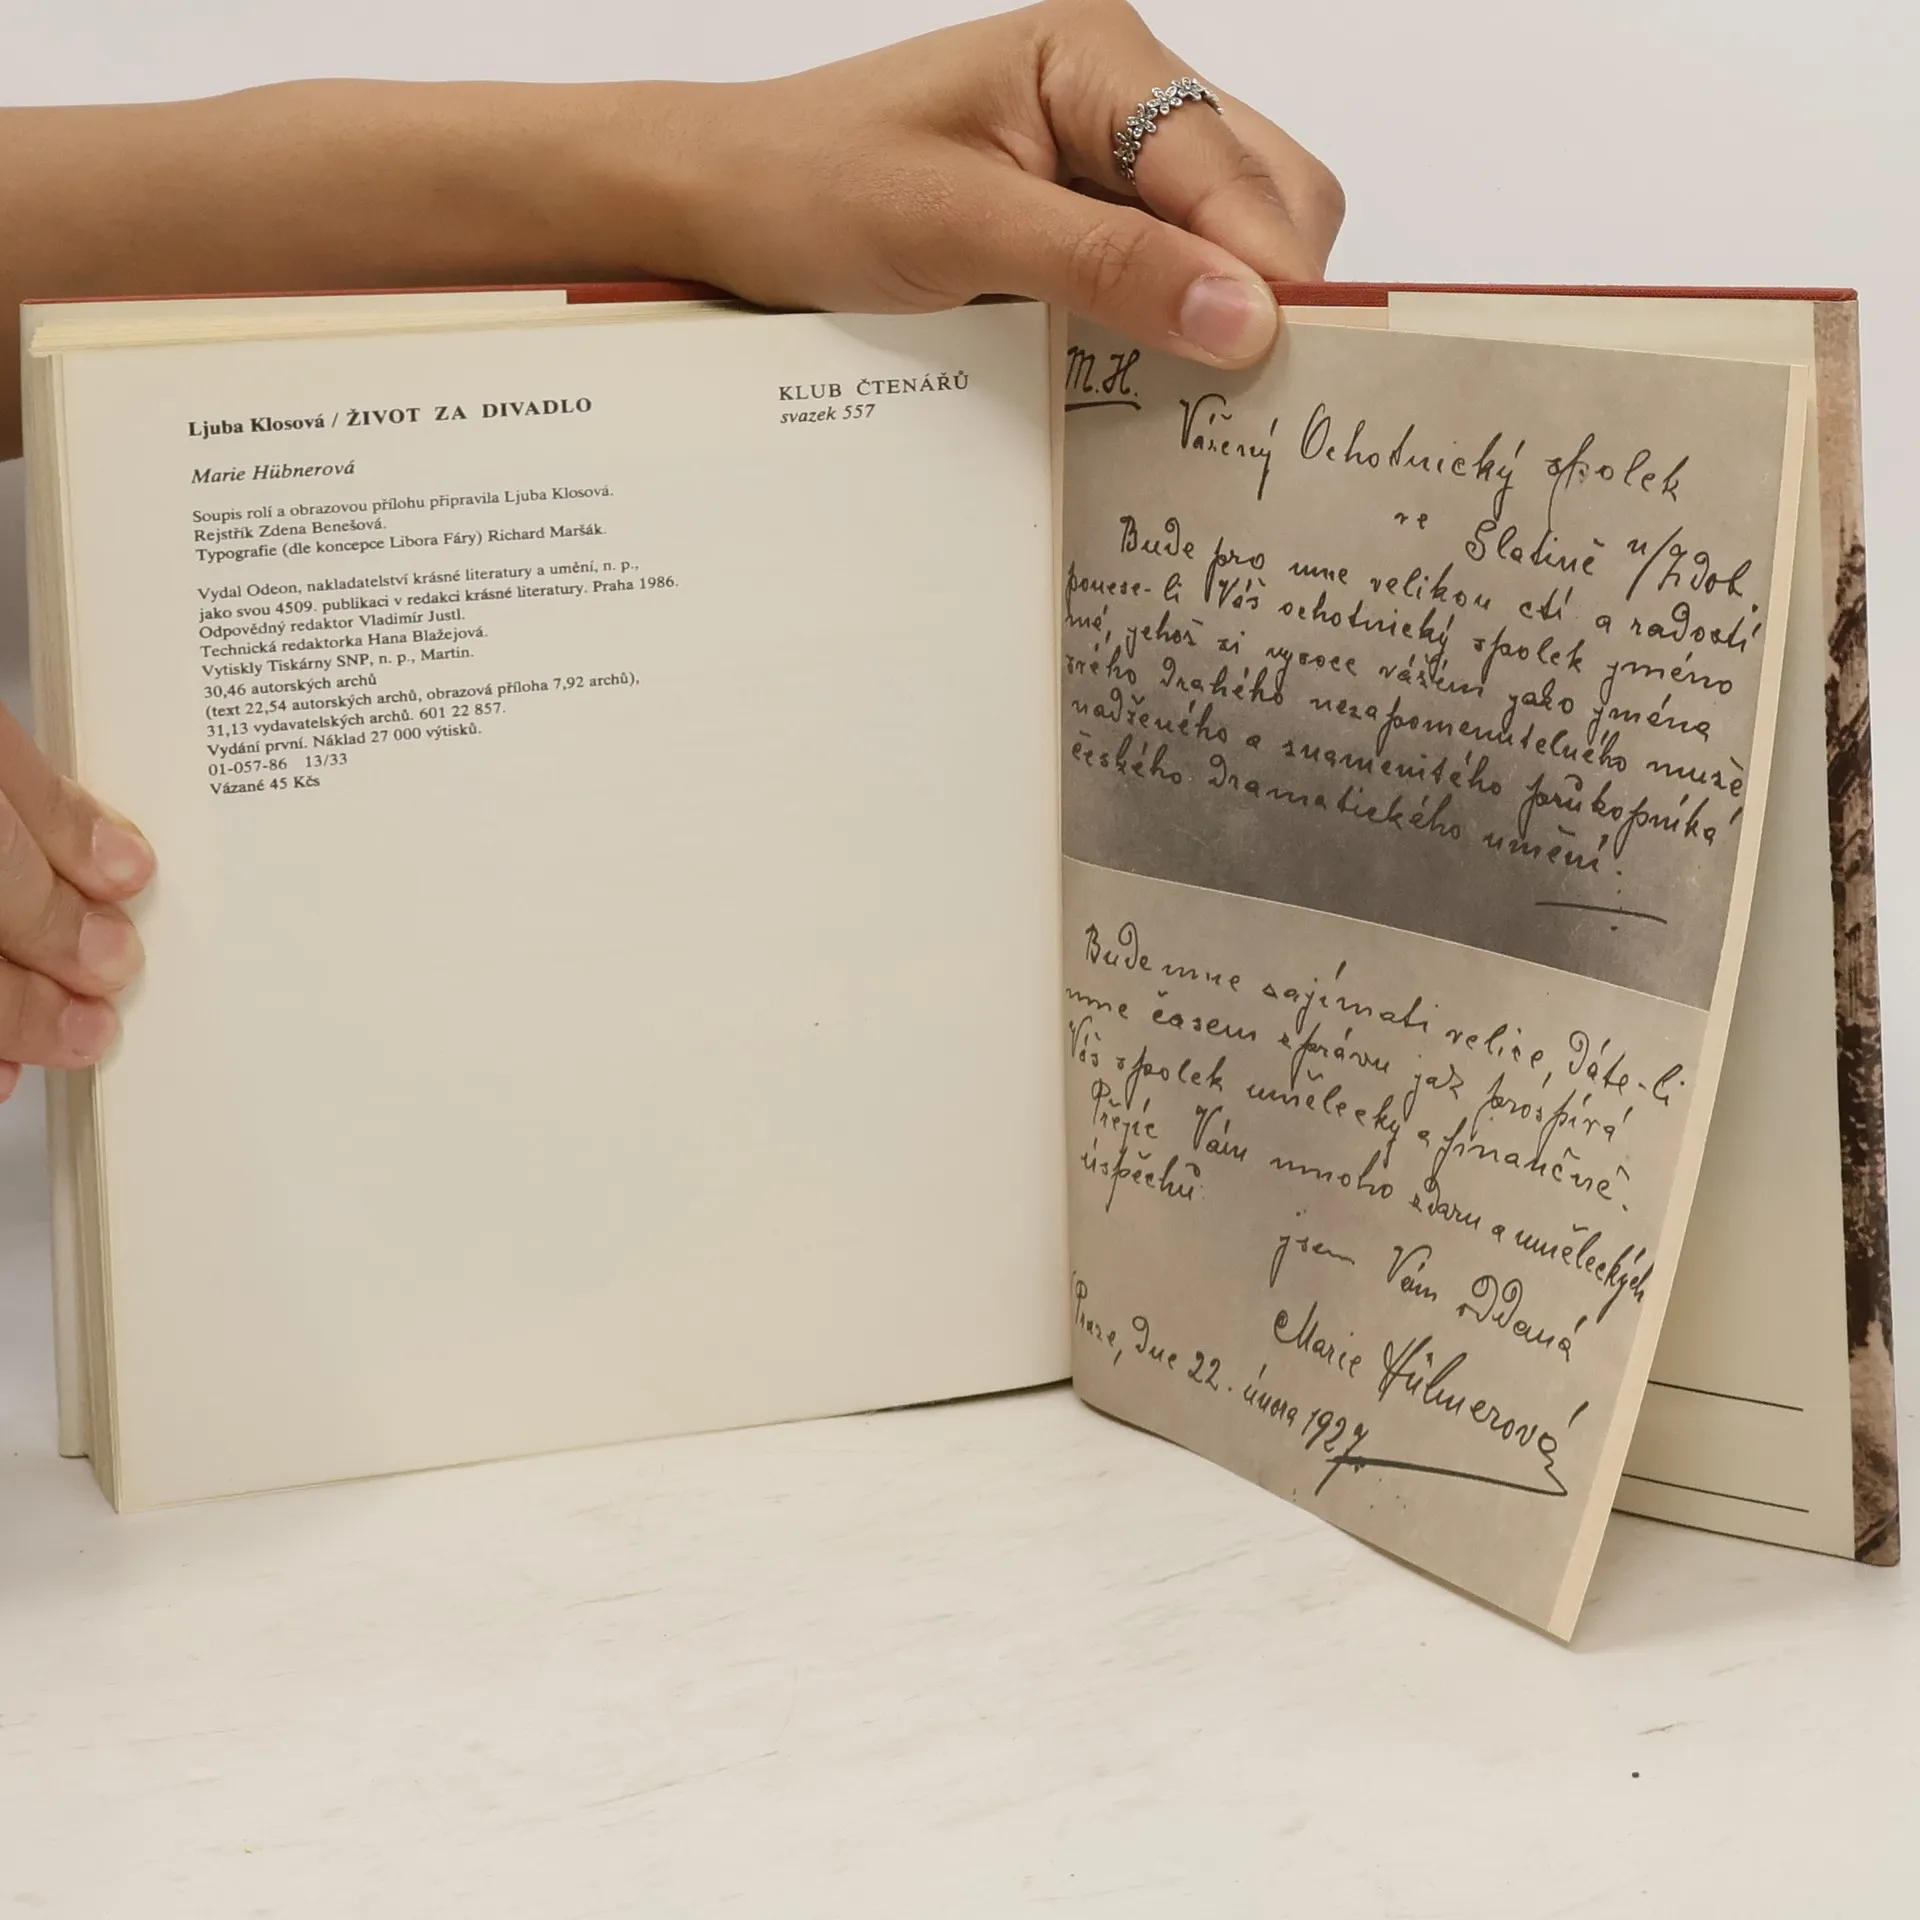 Ljuba Klosová / ŽIVOT ZA DIVADLO
KLUB ČTENÁŘŮ
svazek 557
Marie Hübnerová
Soupis rolí a obrazovou přílohu připravila Ljuba Klosová.
Rejstřík Zdena Benešová.
Typografie (dle koncepce Libora Fáry) Richard Maršák.
Vydal Odeon, nakladatelství krásné literatury a umění, n. p.,
jako svou 4509. publikaci v redakci krásné literatury. Praha 1986.
Odpovědný redaktor Vladimír Justl.
Technická redaktorka Hana Blažejová.
Vytiskly Tiskárny SNP, n. p., Martin.
30,46 autorských archů
(text 22,54 autorských archů, obrazová příloha 7,92 archů),
31,13 vydavatelských archů. 601 22 857.
Vydání první. Náklad 27 000 výtisků.
01-057-86 13/33
Vázané 45 Kčs
M. H.
Vážený Ochotnický spolek
ve
Slatině n/Zdob.
Bude pro mne velikou ctí a radostí
ponese-li Váš ochotnický spolek jméno
mé, jehož si vysoce vážím jako jména
svého drahého nezapomenutelného muže
nadšeného a znamenitého průkopníka
českého dramatického umění.
Bude mne zajímati velice, dáte-li
mne časem zprávu jak prospívá
Váš spolek umělecky a finančně.
Přejíc Vám mnoho zdaru a uměleckých
úspěchů
jsem Vám oddaná
Marie Hübnerová
Praze, dne 22. února 1927.